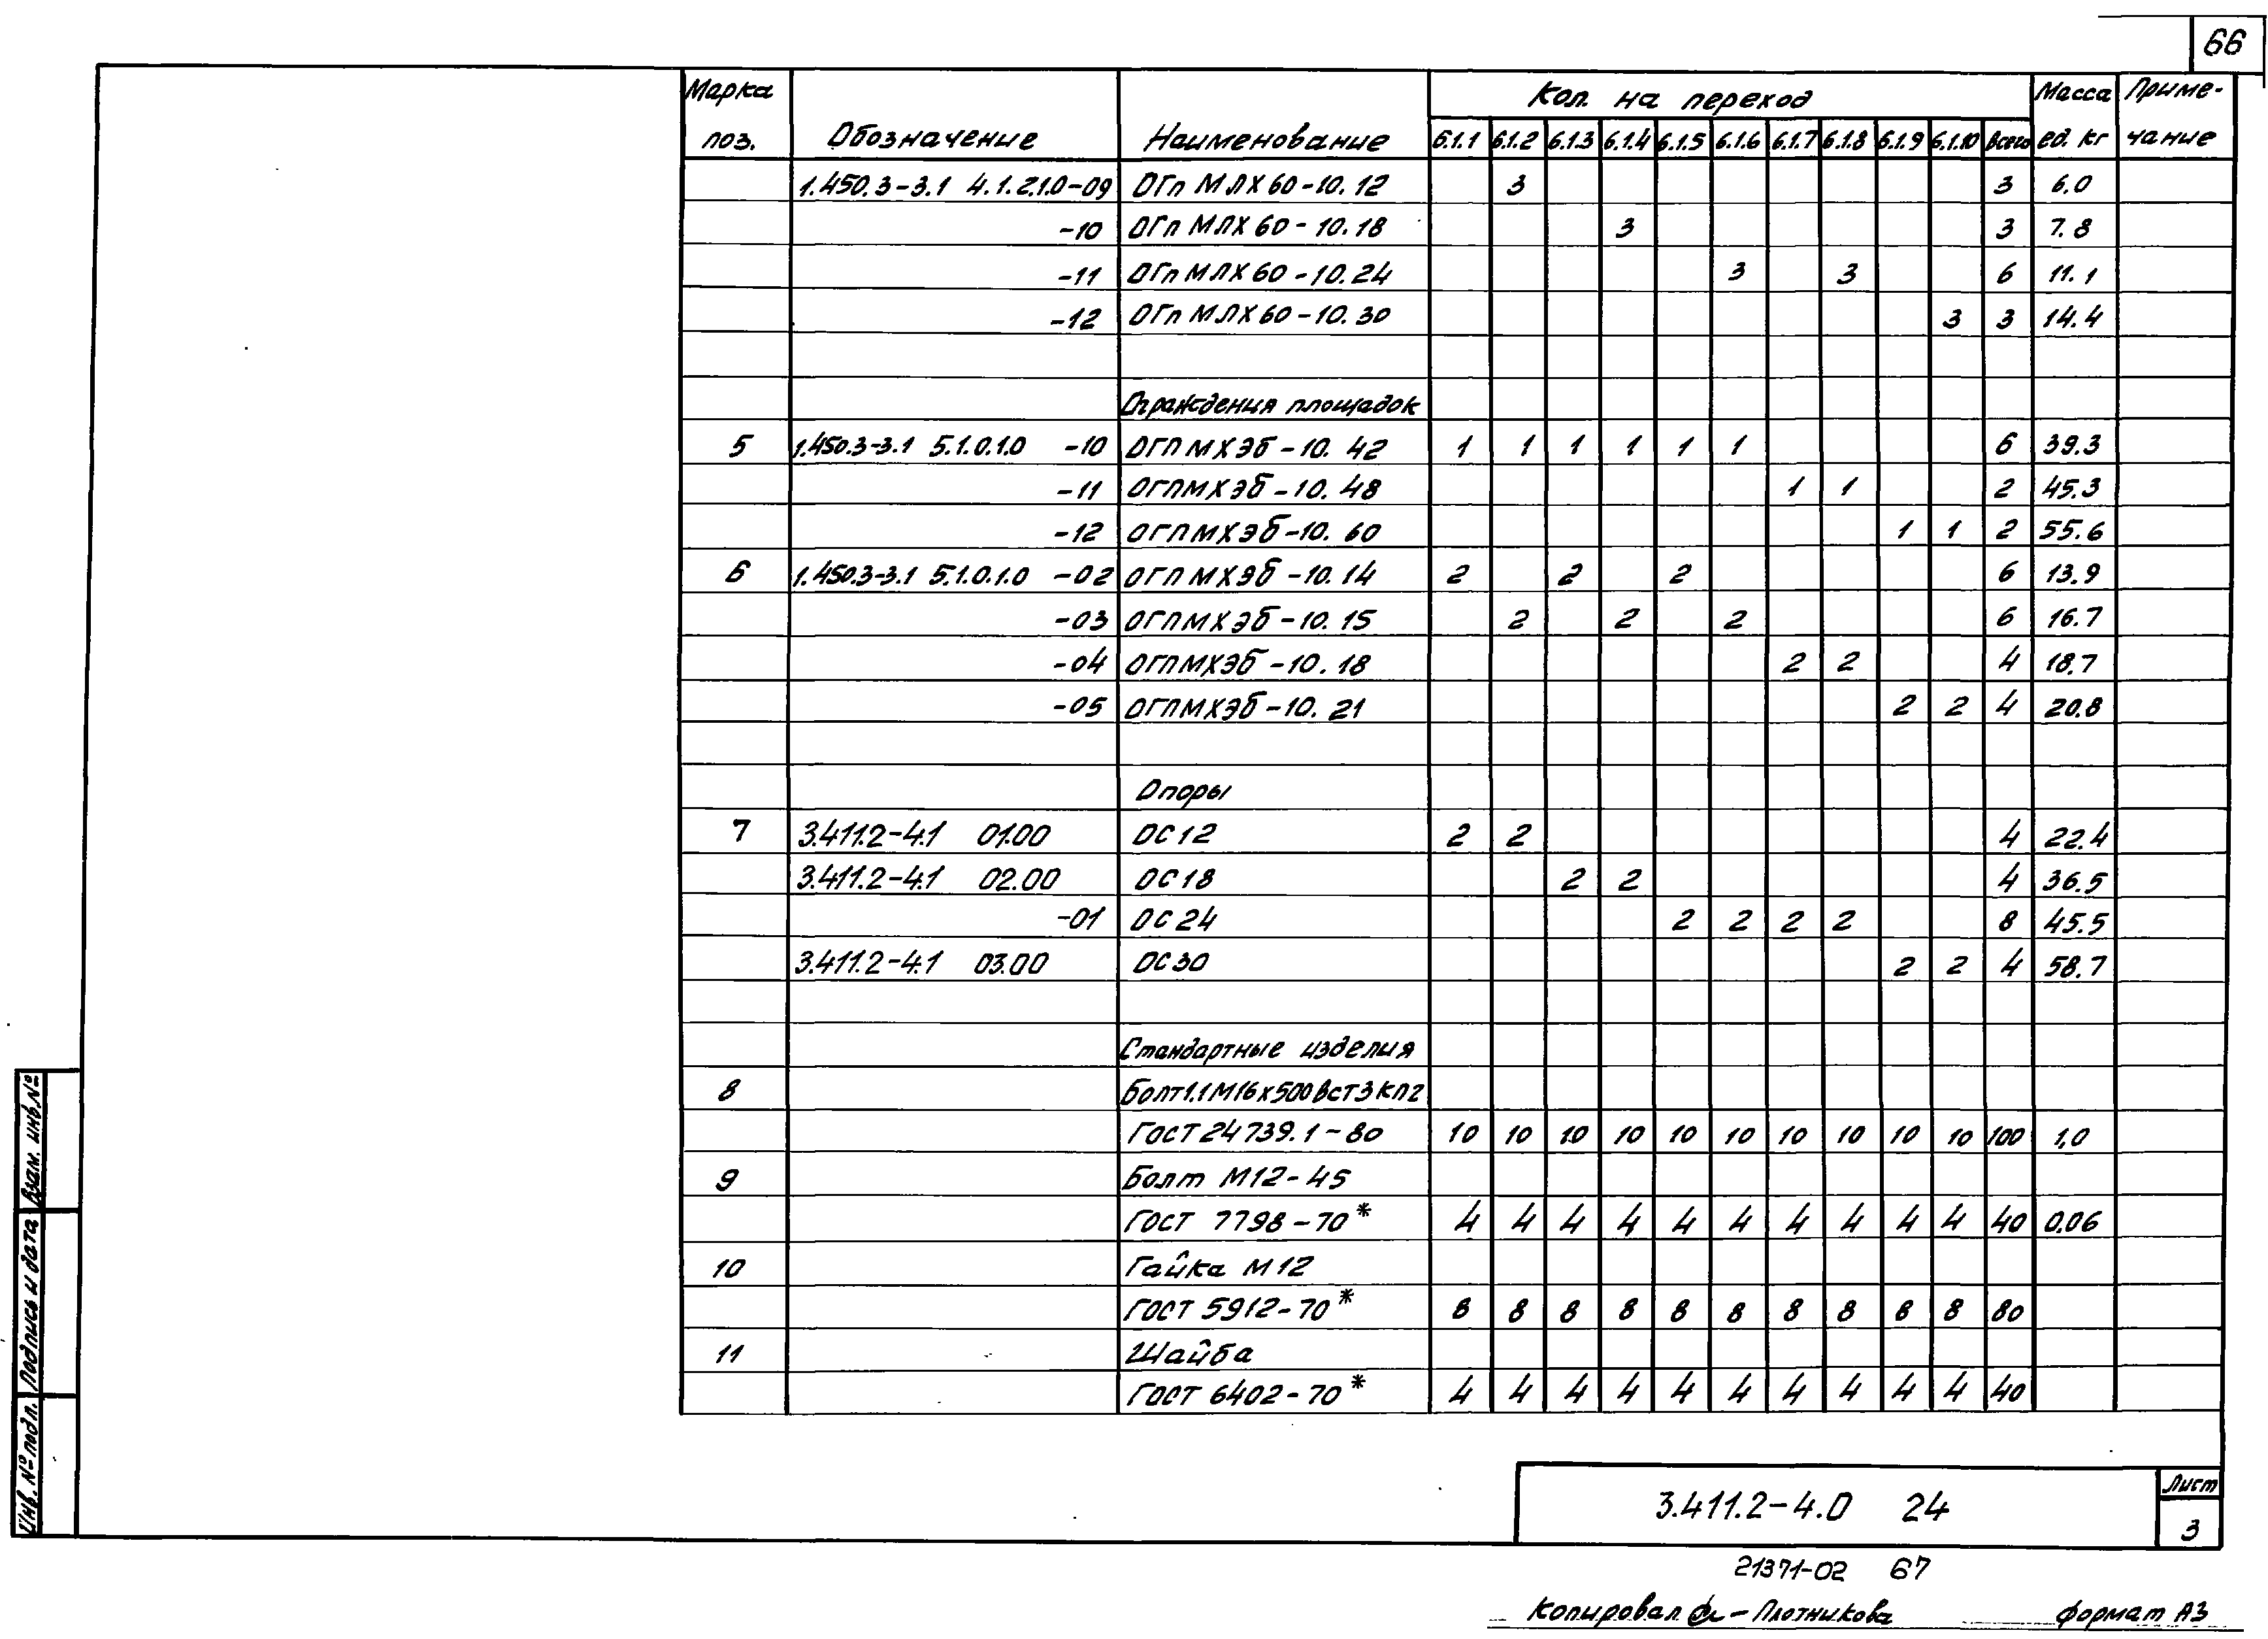 66
Марка поз. Обозначение Наименование Кол. на переход Масса ед. кг Приме-чание
6.1.1 6.1.2 6.1.3 6.1.4 6.1.5 6.1.6 6.1.7 6.1.8 6.1.9 6.1.10 Всего
1.450.3-3.1 4.1.2.1.0-09 ОГпМЛХ60-10.12 3 3 6.0
-10 ОГпМЛХ60-10.18 3 3 7.8
-11 ОГпМЛХ60-10.24 3 3 6 11.1
-12 ОГпМЛХ60-10.30 3 3 14.4
Ограждения площадок
5 1.450.3-3.1 5.1.0.1.0 -10 ОГПМХЭБ-10.42 1 1 1 1 1 1 6 39.3
-11 ОГПМХЭБ-10.48 1 1 2 45.3
-12 ОГПМХЭБ-10.60 1 1 2 55.6
6 1.450.3-3.1 5.1.0.1.0 -02 ОГПМХЭБ-10.14 2 2 2 6 13.9
-03 ОГПМХЭБ-10.15 2 2 2 6 16.7
-04 ОГПМХЭБ-10.18 2 2 4 18.7
-05 ОГПМХЭБ-10.21 2 2 4 20.8
Опоры
7 3.411.2-4.1 01.00 ОС12 2 2 4 22.4
3.411.2-4.1 02.00 ОС18 2 2 4 36.5
-01 ОС24 2 2 2 2 8 45.5
3.411.2-4.1 03.00 ОС30 2 2 4 58.7
Стандартные изделия
8 Болт1.1М16х500ВСт3кп2
ГОСТ 24739.1-80 10 10 10 10 10 10 10 10 10 10 100 1,0
9 Болт М12-45
ГОСТ 7798-70* 4 4 4 4 4 4 4 4 4 4 40 0.06
10 Гайка М12
ГОСТ 5912-70* 8 8 8 8 8 8 8 8 8 8 80
11 Шайба
ГОСТ 6402-70* 4 4 4 4 4 4 4 4 4 4 40
Инв. № подл. Подпись и дата Взам. инв. №
3.411.2-4.0 24
Лист
3
21371-02 67
Копировал - Плотникова формат А3